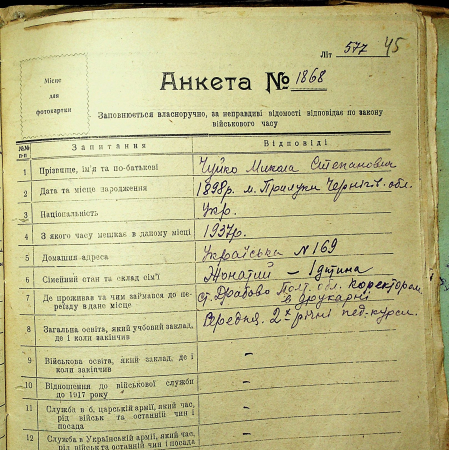 Літ 577 45
Місце
для
фотокартки
Анкета № 1868
Заповнюється власноручно, за неправдиві відомості відповідає по закону
військового часу
№№ п-п Запитання Відповіді
1 Прізвище, ім'я та по-батькові Чуйко Микола Степанович
2 Дата та місце зародження 1898р. м. Прилуки Черніг. обл.
3 Національність Укр.
4 З якого часу мешкає в даному місці 1937р.
5 Домашня адреса Українська № 169
6 Сімейний стан та склад сім'ї Жонатий – 1 дитина
7 Де проживав та чим займався до пе-
реїзду в дане місце ст. Драбово Полт. обл. коректором
в друкарні
8 Загальна освіта, який учбовий заклад,
де і коли закінчив Середня. 2х річні пед. курси.
9 Військова освіта, який заклад, де і
коли закінчив –
10 Відношення до військової служби
до 1917 року –
11 Служба в б. царській армії, який час,
рід військ та останній чин і
посада –
12 Служба в Українській армії, який час,
рід військ та останній чин і посада –